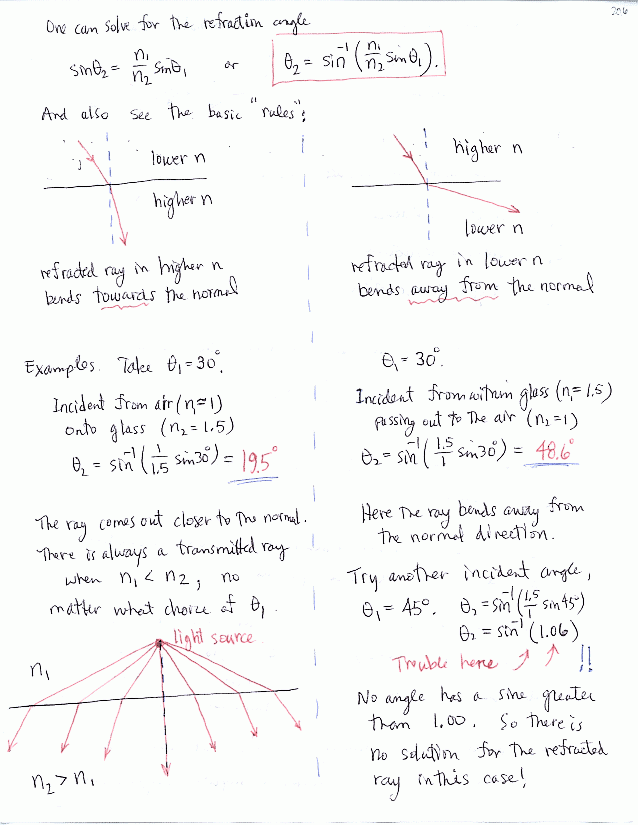 206
One can solve for the refraction angle
sinθ₂ = n₁/n₂ sinθ₁ or θ₂ = sin⁻¹(n₁/n₂ sinθ₁).
And also see the basic "rules":
lower n
higher n
refracted ray in higher n
bends towards the normal
higher n
lower n
refracted ray in lower n
bends away from the normal
Examples. Take θ₁ = 30°.
Incident from air (n₁ = 1)
onto glass (n₂ = 1.5)
θ₂ = sin⁻¹(1/1.5 sin30°) = 19.5°
The ray comes out closer to the normal.
There is always a transmitted ray
when n₁ < n₂, no
matter what choice of θ₁.
light source
n₁
n₂ > n₁
θ₁ = 30°.
Incident from within glass (n₁ = 1.5)
passing out to the air (n₂ = 1)
θ₂ = sin⁻¹(1.5/1 sin30°) = 48.6°
Here the ray bends away from
the normal direction.
Try another incident angle,
θ₁ = 45°. θ₂ = sin⁻¹(1.5/1 sin45°)
θ₂ = sin⁻¹(1.06)
Trouble here !!
No angle has a sine greater
than 1.00. So there is
no solution for the refracted
ray in this case!